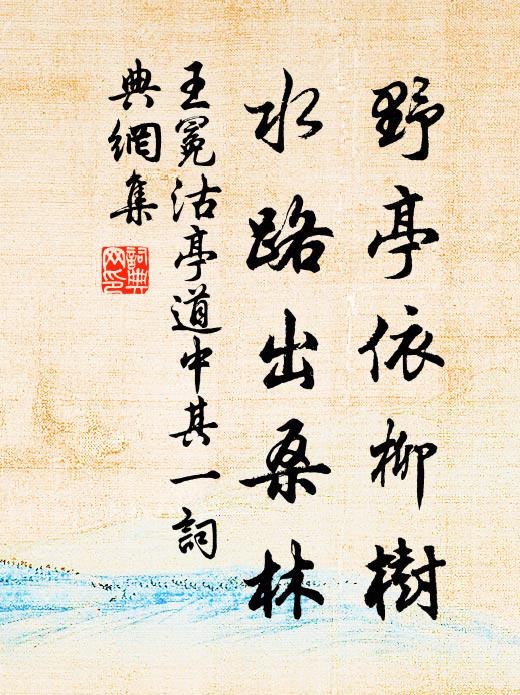 野亭依柳樹
水路出桑林
王冕沽亭道中其一詞
典網集
詞典網印